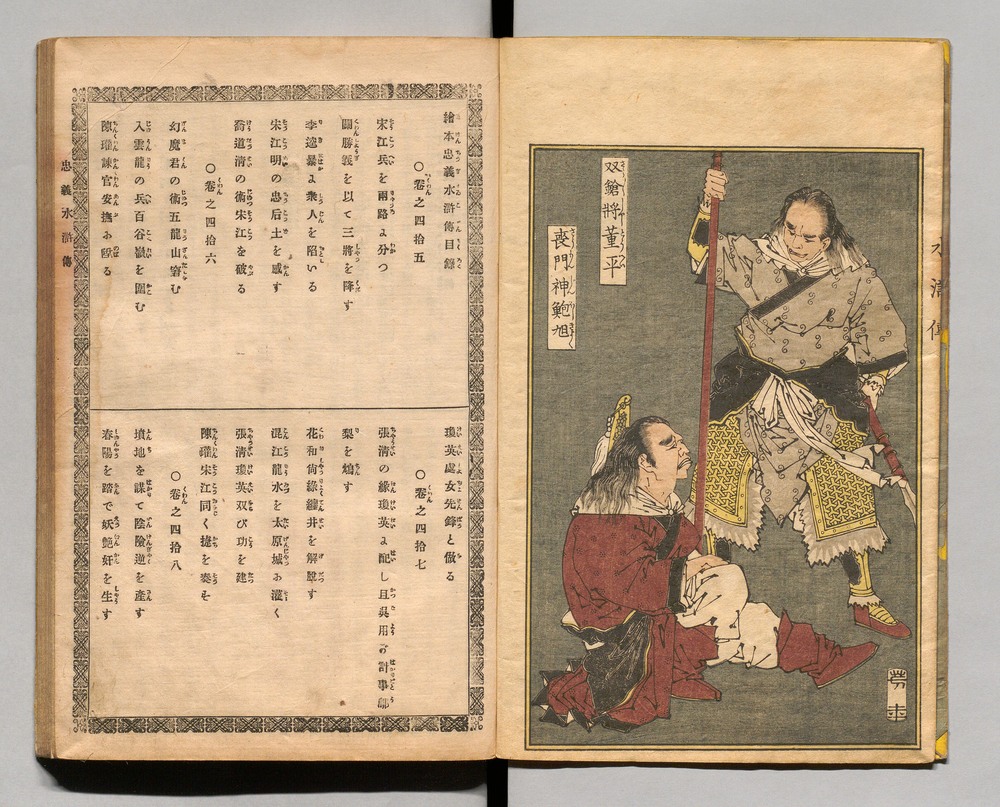 双鎗將董平
喪門神鮑旭
繪本忠義水滸傳目錄
○卷之四拾五
宋江兵を兩路よ分つ
關勝義を以て三將を降す
李逵暴よ衆人を陷いる
宋江明の忠后土を感す
喬道清の術宋江を破る
○卷之四拾六
幻魔君の術五龍山窘む
入雲龍の兵百谷嶺を圍む
陳瓘諫官安撫お陞る
瓊英處女先鋒と做る
○卷之四拾七
張清の緣瓊英よ配し且吳用の計事鄔
梨を鴆す
花和尚緣纏井を解脫す
混江龍水を太原城お灌く
張清瓊英双び功を建
陳瓘宋江同く捷を奏を
○卷之四拾八
墳地を謀て陰險逆を產す
春陽を踏で妖艶奸を生す
忠義水滸傳
水滸傳